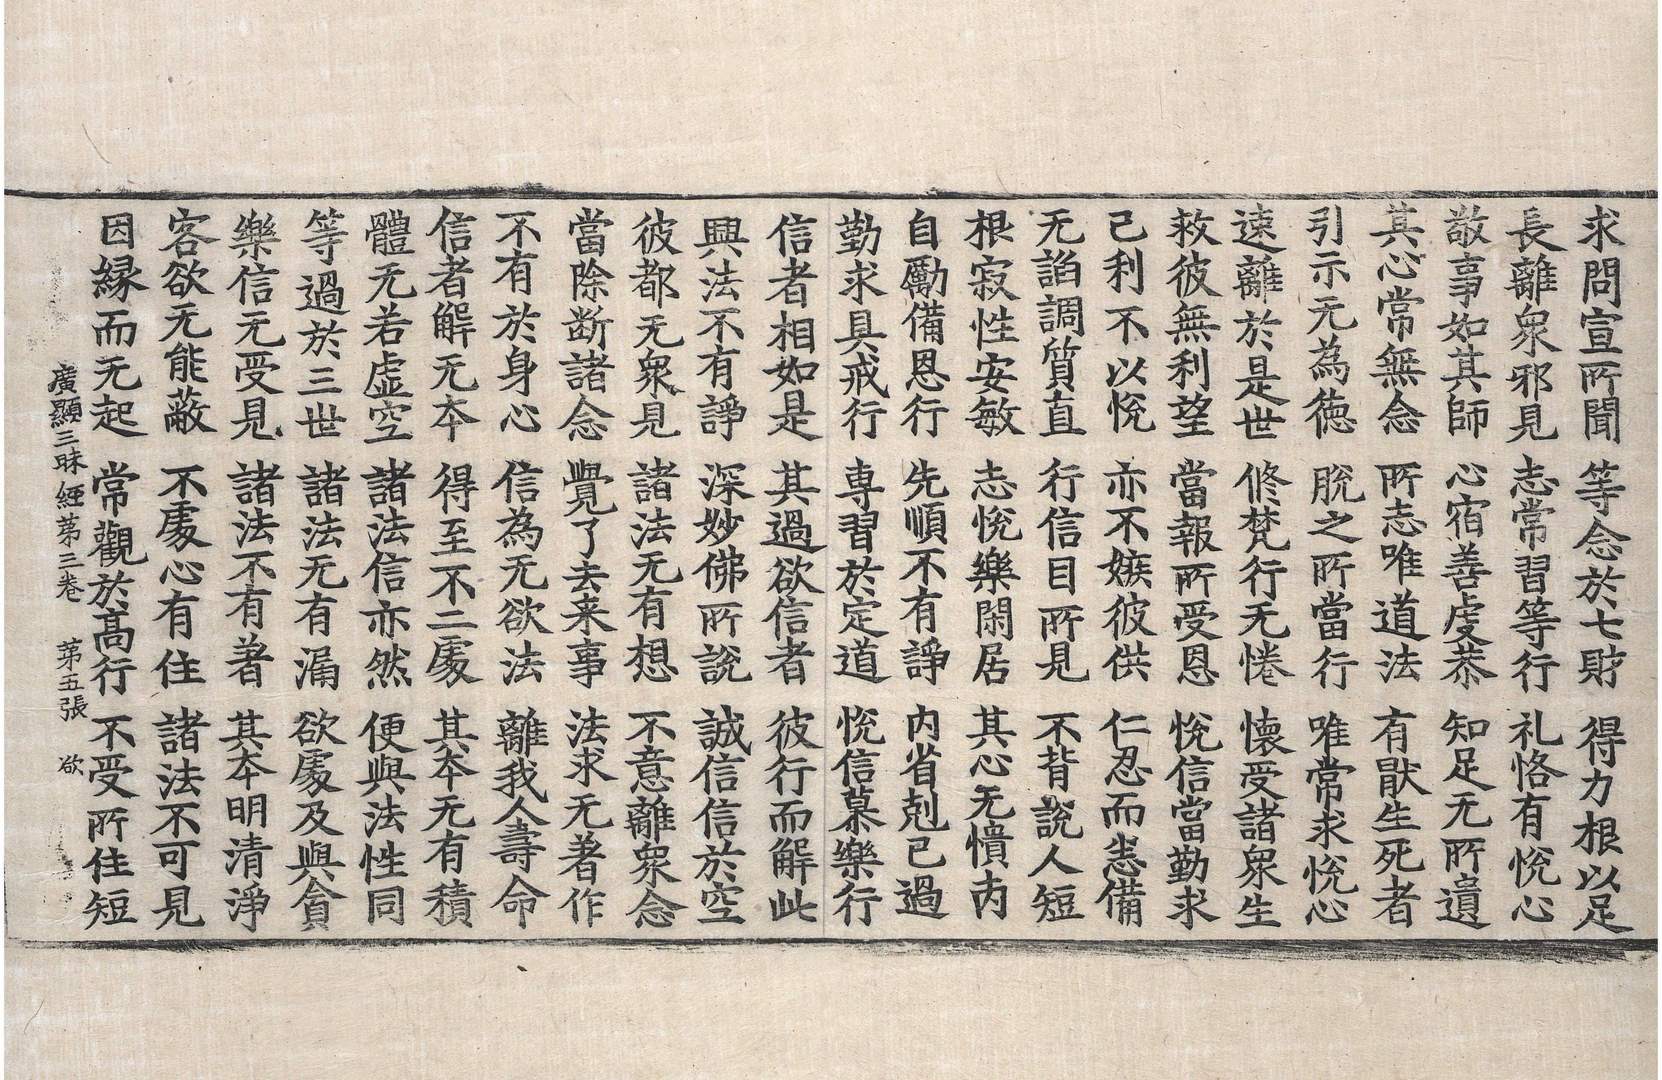 求問宣所聞 等念於七財 得力根以足
長離衆邪見 志常習等行 礼恪有悅心
敬事如其師 心宿善虔恭 知足无所遺
其心常無念 所志唯道法 有猒生死者
引示无為徳 脫之所當行 唯常求悅心
速離於是世 修梵行无惓 懷受諸衆生
救彼無利望 當報所受恩 悅信當勤求
己利不以悅 亦不嫉彼供 仁忍而恙備
无謟調質直 行信目所見 不背說人短
根寂性安敏 志悅樂閑居 其心无憒內
自勵備恩行 先順不有諍 內省剋己過
勤求具戒行 専習於定道 悅信慕樂行
信者相如是 其過欲信者 彼行而解此
興法不有諍 深妙佛所說 誠信信於空
彼都无衆見 諸法无有想 不意離衆念
當除断諸念 覺了去来事 法求无著作
不有於身心 信為无欲法 離我人壽命
信者解无本 得至不二處 其本无有積
體无若虛空 諸法信亦然 便與法性同
等過於三世 諸法无有漏 欲處及與貪
樂信无受見 諸法不有著 其本明清淨
客欲无能蔽 不處心有住 諸法不可見
因縁而无起 常觀於髙行 不受所住短
廣顯三昧經第三卷 第五張 欲